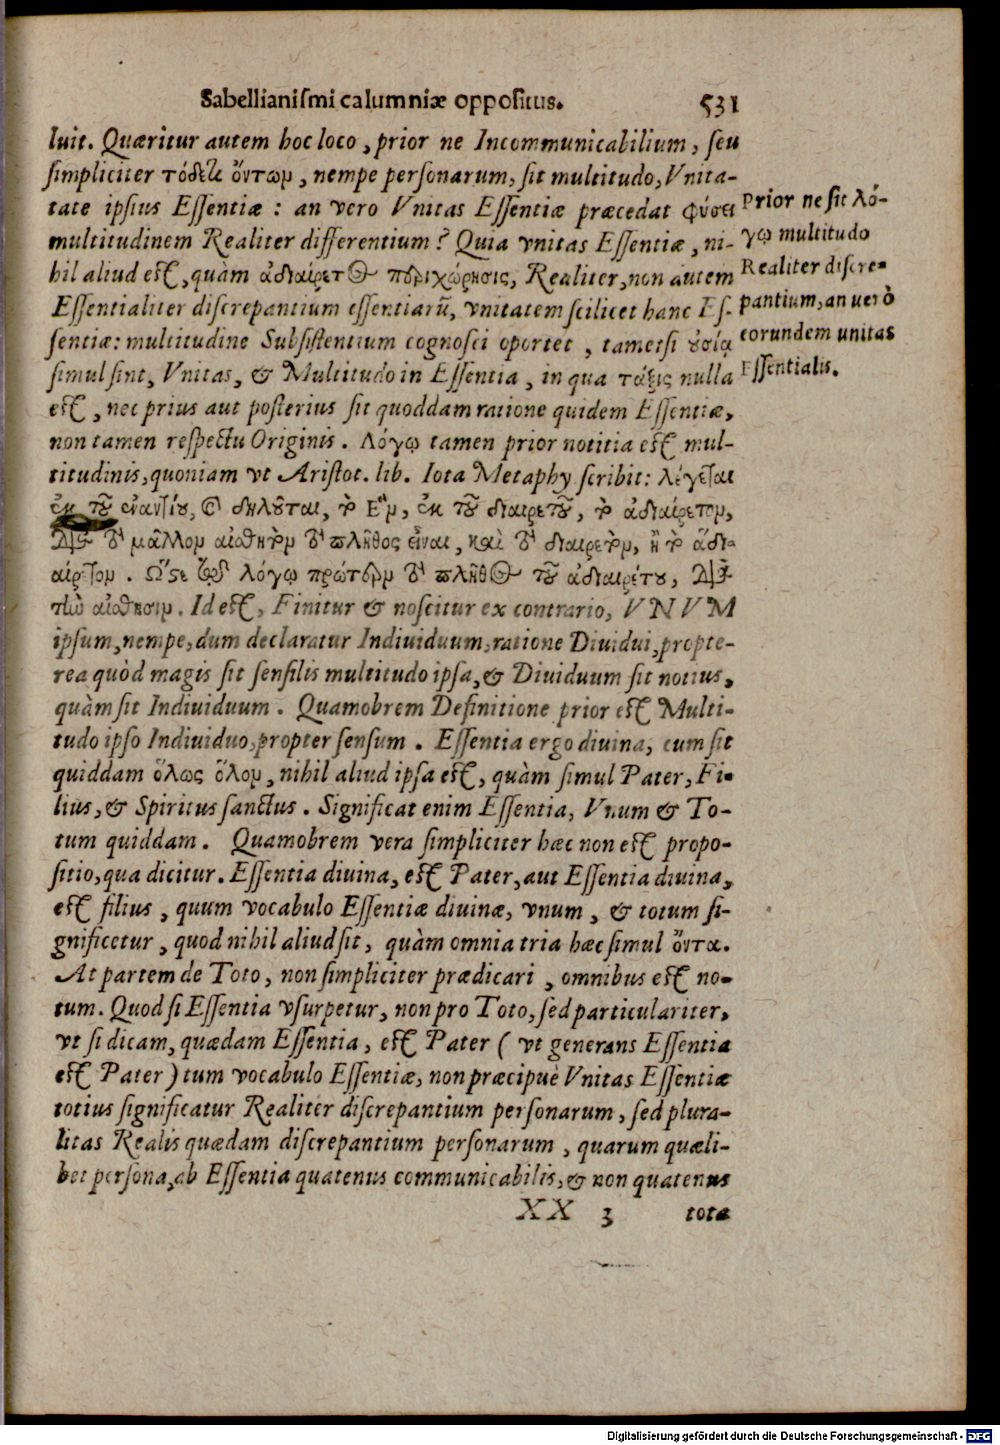 Sabellianiſmi calumniæ oppoſitus. 531
luit. Quæritur autem hoc loco, prior ne Incommunicabilium, ſeu
ſimpliciter τόδε ὄντων, nempe perſonarum, ſit multitudo, Vnita-
tate ipſius Eſſentiæ : an vero Vnitas Eſſentiæ præcedat φύσει
multitudinem Realiter differentium? Quia vnitas Eſſentiæ, ni-
hil aliud eſt, quàm ἀδιαίρετος περιχώρησις, Realiter, non autem
Eſſentialiter diſcrepantium eſſentiarũ, vnitatem ſcilicet hanc Eſ-
ſentiæ: multitudine Subſiſtentium cognoſci oportet, tametſi ȣσίᾳ
ſimul ſint, Vnitas, & Multitudo in Eſſentia, in qua τάξις nulla
eſt, nec prius aut poſterius ſit quoddam ratione quidem Eſſentiæ,
non tamen reſpectu Originis. Λόγῳ tamen prior notitia eſt mul-
titudinis, quoniam vt Ariſtot. lib. Iota Metaphy ſcribit: λέγεται
ἐκ τοῦ ἐναντίου, καὶ δηλοῦται, τὸ Ἓν, ἐκ τοῦ διαιρετοῦ, τὸ ἀδιαίρετον,
Διὰ τὸ μᾶλλον αἰσθητὸν τὸ πλῆθος εἶναι, καὶ τὸ διαιρετὸν, ἢ τὸ ἀδι-
αίρετον. Ὥστε τῷ λόγῳ πρότερον τὸ πλῆθος τοῦ ἀδιαιρέτου, Διὰ
τὴν αἴσθησιν. Id eſt, Finitur & noſcitur ex contrario, VNVM
ipſum, nempe, dum declaratur Indiuiduum, ratione Diuidui, propte-
rea quòd magis ſit ſenſilis multitudo ipſa, & Diuiduum ſit notius,
quàm ſit Indiuiduum. Quamobrem Definitione prior eſt Multi-
tudo ipſo Indiuiduo, propter ſenſum. Eſſentia ergo diuina, cum ſit
quiddam ὅλως ὅλον, nihil aliud ipſa eſt, quàm ſimul Pater, Fi-
lius, & Spiritus ſanctus. Significat enim Eſſentia, Vnum & To-
tum quiddam. Quamobrem vera ſimpliciter hæc non eſt propo-
ſitio, qua dicitur. Eſſentia diuina, eſt Pater, aut Eſſentia diuina,
eſt filius, quum vocabulo Eſſentiæ diuinæ, vnum, & totum ſi-
gnificetur, quod nihil aliud ſit, quàm omnia tria hæc ſimul ὄντα.
At partem de Toto, non ſimpliciter prædicari, omnibus eſt no-
tum. Quod ſi Eſſentia vſurpetur, non pro Toto, ſed particulariter,
vt ſi dicam, quædam Eſſentia, eſt Pater ( vt generans Eſſentia
eſt Pater ) tum vocabulo Eſſentiæ, non præcipuè Vnitas Eſſentiæ
totius ſignificatur Realiter diſcrepantium perſonarum, ſed plura-
litas Realis quædam diſcrepantium perſonarum, quarum quæli-
bet perſona, ab Eſſentia quatenus communicabilis, & non quatenus
XX 3 tota
Prior ne ſit λό-
γῳ multitudo
Realiter diſcre-
pantium, an verò
eorundem unitas
Eſſentialis.
Digitalisierung gefördert durch die Deutsche Forschungsgemeinschaft - DFG